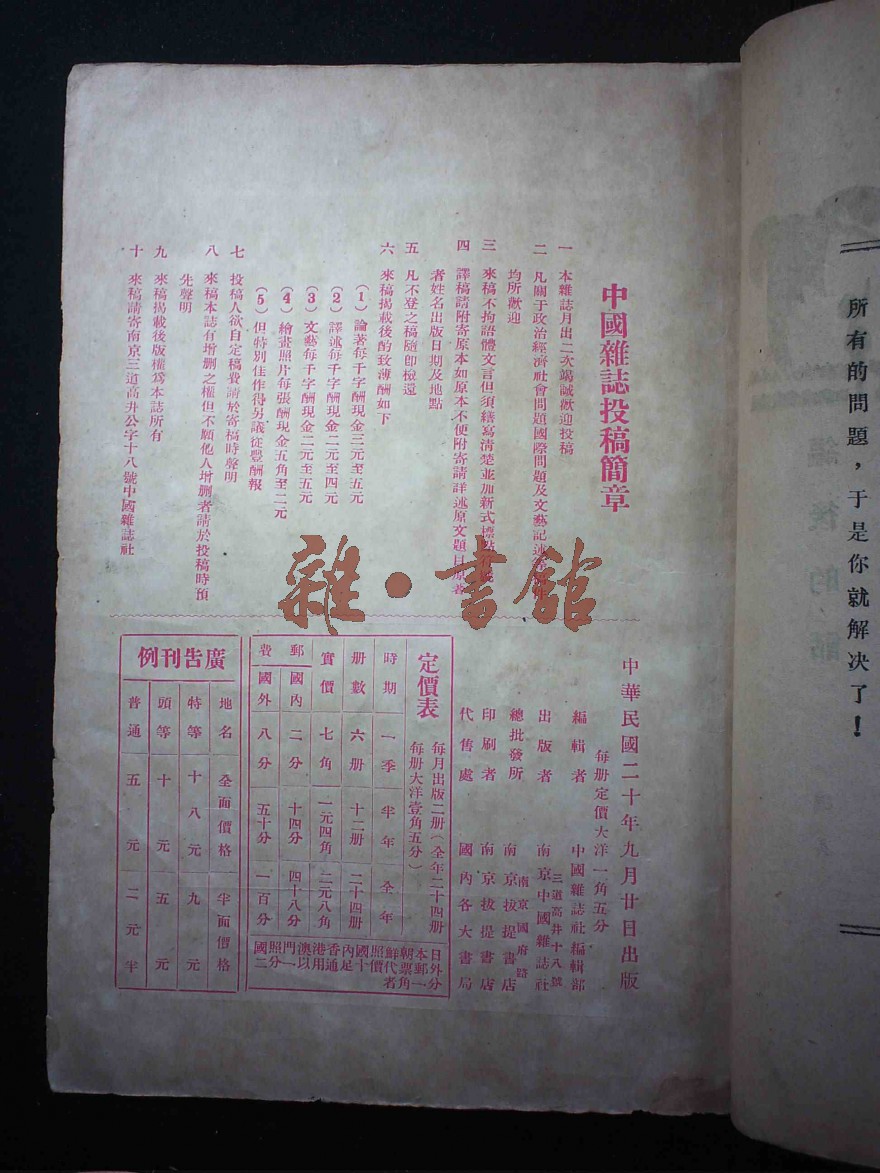 所有的問題，于是你就解決了！
中國雜誌投稿簡章
一 本雜誌月出二次竭誠歡迎投稿
二 凡關于政治經濟社會問題國際問題及文藝記述
均所歡迎
三 來稿不拘語體文言但須繕寫清楚並加新式標點
四 譯稿請附寄原本如原本不便附寄請詳述原文題目原著
者姓名出版日期及地點
五 凡不登之稿隨即檢還
六 來稿揭載後酌致薄酬如下
(1) 論著每千字酬現金三元至五元
(2) 譯述每千字酬現金二元至四元
(3) 文藝每千字酬現金二元至五元
(4) 繪畫照片每張酬現金五角至二元
(5) 但特別佳作得另議從豐酬報
七 投稿人欲自定稿費請於寄稿時聲明
八 來稿本誌有增删之權但不願他人增删者請於投稿時預
先聲明
九 來稿揭載後版權爲本誌所有
十 來稿請寄南京三道高井公字十八號中國雜誌社
雜·書館
中華民國二十年九月廿日出版
每册定價大洋一角五分
編輯者 中國雜誌社編輯部
三道高井十八號
出版者 南京中國雜誌社
南京國府路
總批發所 南京拔提書店
印刷者 南京拔提書店
代售處 國內各大書局
定價表 每月出版二册(全年二十四册
每册大洋壹角五分)
時期 一季 半年 全年
册數 六册 十二册 二十四册
實價 七角 一元四角 二元八角
郵費 國內 二分 十四分 四十八分
國外 八分 五十分 一百分
日本朝鮮照國內香港澳門照國
外郵票代價十足通用以一分二
分一角者
廣告刊例
地名 全面價格 半面價格
特等 十八元 九元
頭等 十元 五元
普通 五元 二元半